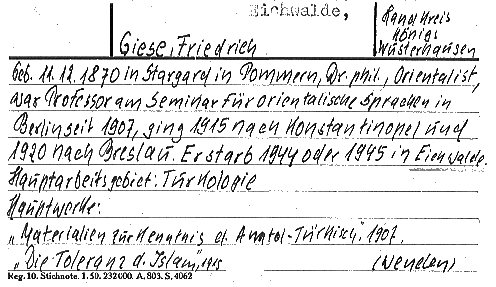 Eichwalde,
Landkreis
Königs
Wusterhausen
Giese, Friedrich
Geb. 11.12.1870 in Stargard in Pommern, Dr. phil., Orientalist,
war Professor am Seminar für orientalische Sprachen in
Berlin seit 1907, ging 1915 nach Konstantinopel und
1920 nach Breslau. Er starb 1944 oder 1945 in Eichwalde.
Hauptarbeitsgebiet: Turkologie
Hauptwerke:
„Materialien zur Kenntnis d. Anatol-Türkisch". 1907.
„Die Toleranz d. Islam", 1915
(Wendlen)
Reg. 10. Stichnote. 1. 50. 232000. A. 803. S. 4062